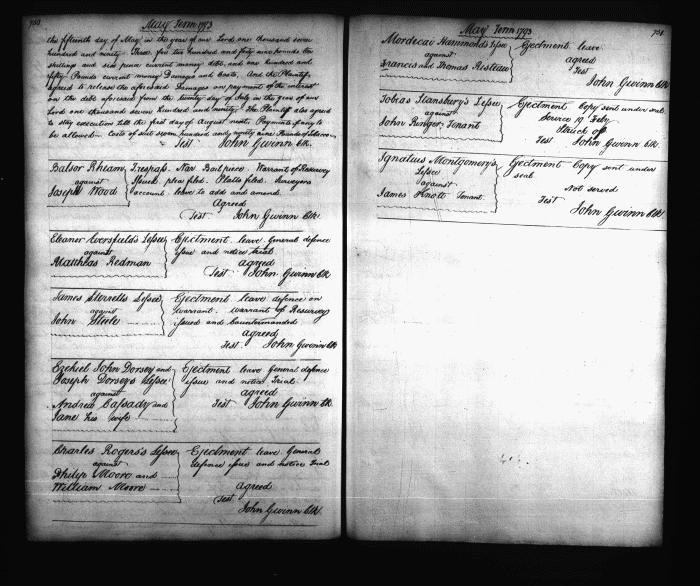 700
May Term 1793
the fifteenth day of May in the year of our Lord one thousand seven
hundred and ninety Three for two hundred and forty nine pounds ten
shillings and six pence current money debt and one hundred and
fifty Pounds current money Damages and Costs. And the Plaintiff
agreed to release the aforesaid Damages on payment of the interest
on the debt aforesaid from the twenty day of July in the year of our
Lord one thousand seven hundred and ninety. The Plaintiff also agreed
to stay execution till the first day of August next. Payments if any to
be allowed. Costs of suit seven hundred and ninety nine Pounds of Tobacco
Test John Gwinn Clk.
Balsor Rheam
against
Joseph Wood
Trespass. Nar. Bail piece. Warrant of Resurvey
Issued. pleas filed. Platts filed. Surveyors
account. leave to add and amend.
Agreed
Test John Gwinn Clk.
Eleanor Eversfield's Lessee
against
Matthias Redman
Ejectment. leave. General defence
issue and notice trial.
agreed
Test John Gwinn Clk
James Sterrett's Lessee
against
John Steele
Ejectment leave defence on
Warrant. Warrant of Resurvey
issued and Countermanded
agreed
Test John Gwinn Clk
Ezekiel John Dorsey and
Joseph Dorsey's Lessee
against
Andrew Cassady and
Jane his wife
Ejectment leave General defence
issue and notice Trial.
agreed
Test John Gwinn Clk.
Charles Rogers's Lessee
against
Philip Moore and
William Moore
Ejectment leave General
defence issue and notice Trial
agreed
Test
John Gwinn Clk
May Term 1793
701
Mordecai Hammond's Lessee
against
Francis and Thomas Risteau
Ejectment leave
agreed
Test
John Gwinn Clk
Tobias Stansbury's Lessee
against
John Ringer Tenant
Ejectment Copy sent under seal
Service 19 Feby
Struck off
Test John Gwinn Clk
Ignatius Montgomery's
Lessee
against
James Knott Tenant
Ejectment Copy sent under
seal
Not served
Test
John Gwinn Clk